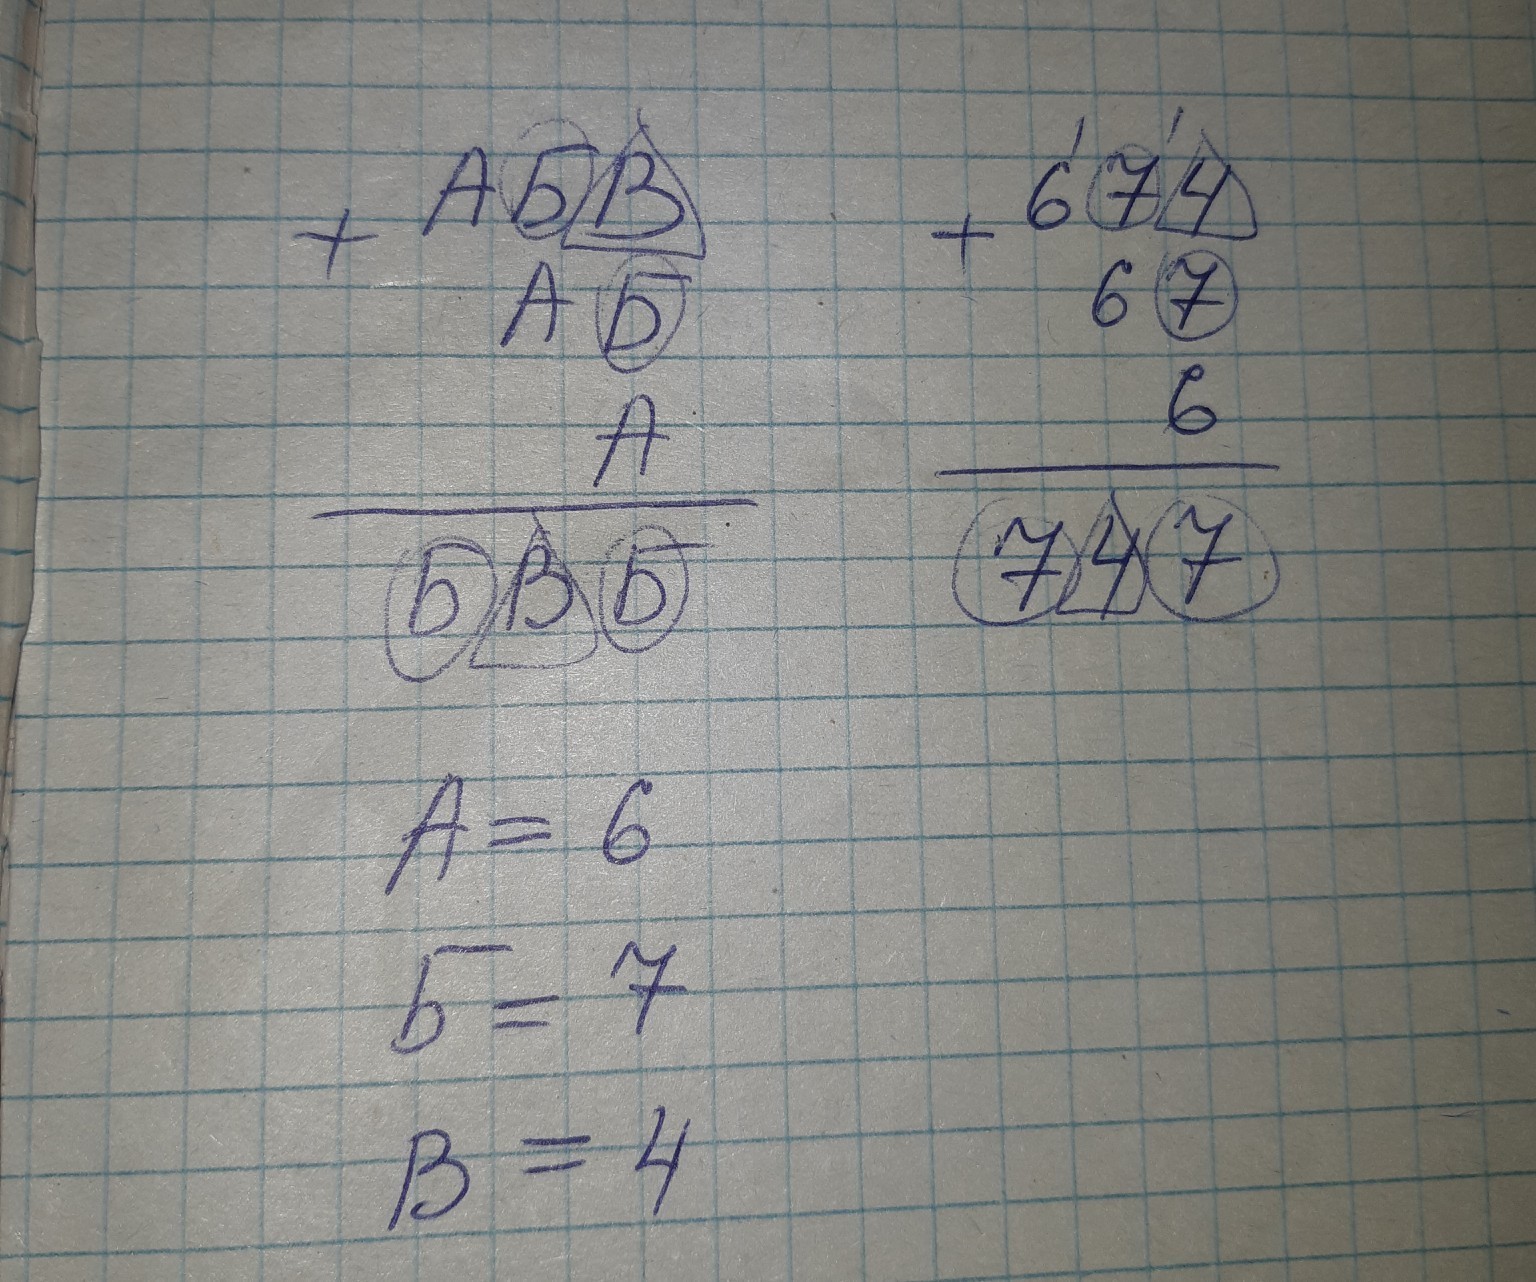 + АБВ
АБ
А
БВБ
1 1
+ 674
67
6
747
А = 6
Б = 7
В = 4